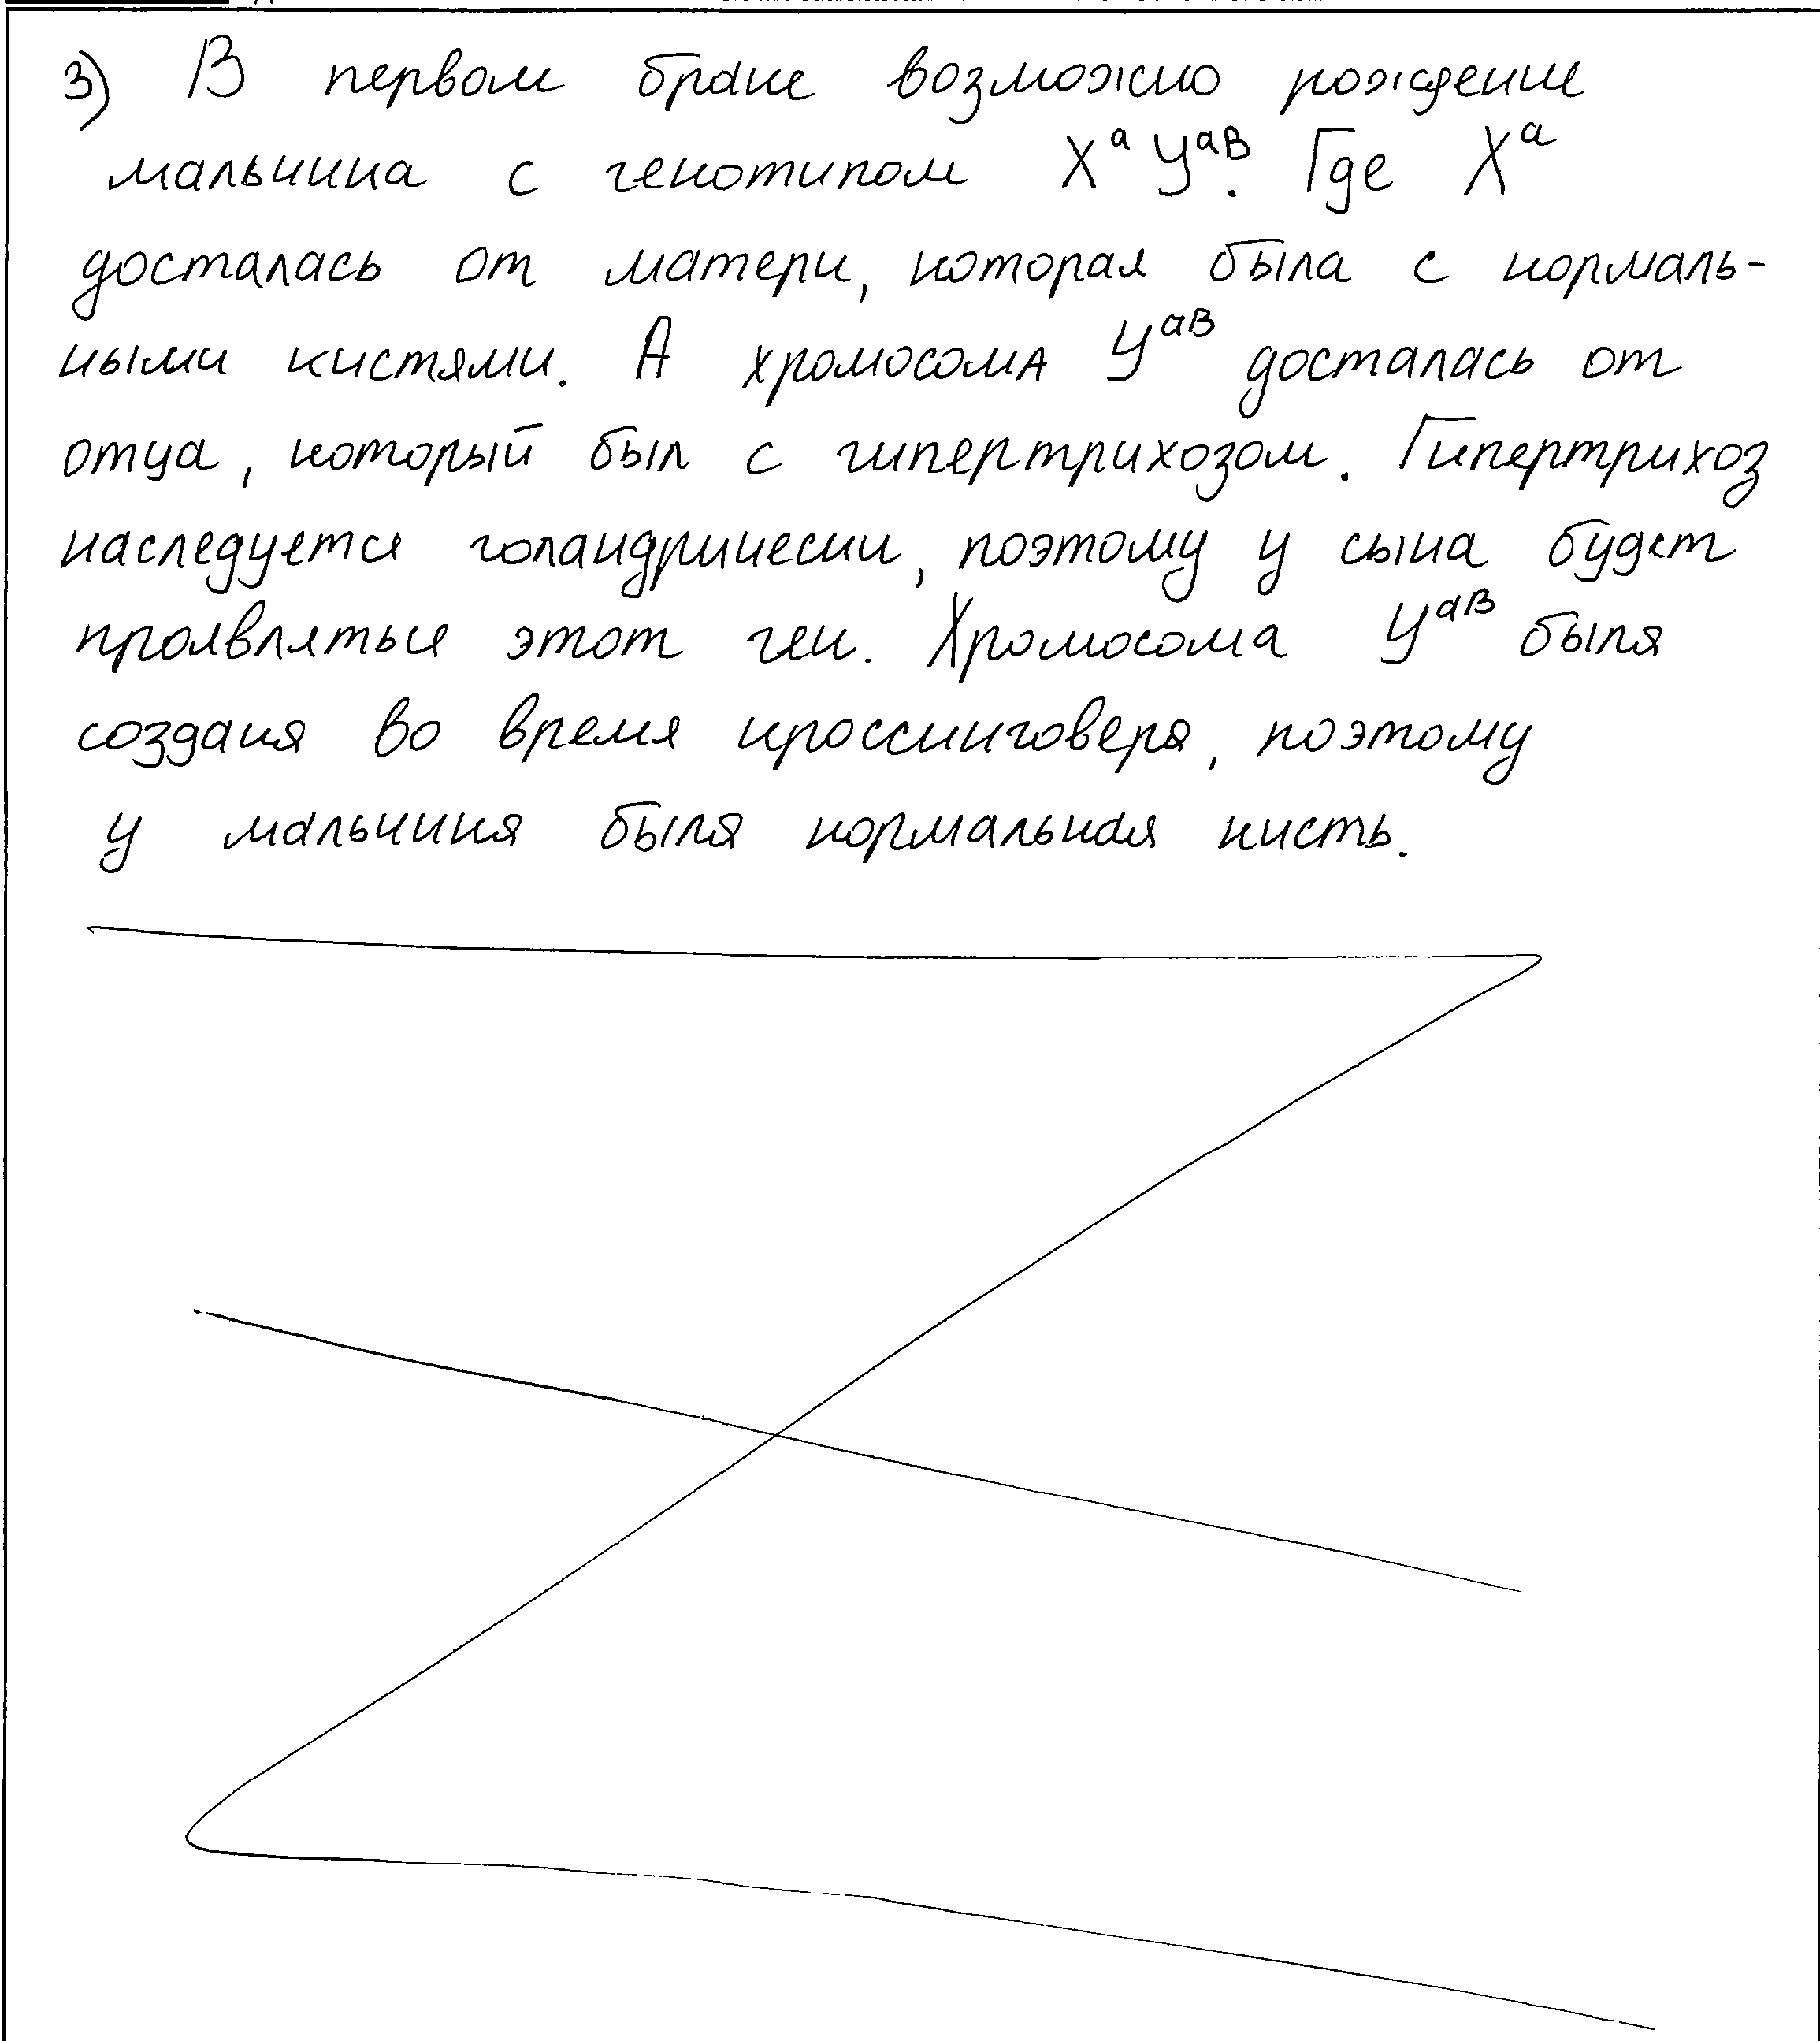 3) В первом браке возможно рождение
мальчика с генотипом XᵃYᵃᴮ. Где Xᵃ
досталась от матери, которая была с нормаль-
ными кистями. А хромосома Yᵃᴮ досталась от
отца, который был с гипертрихозом. Гипертрихоз
наследуется голандрически, поэтому у сына будет
проявляться этот ген. Хромосома Yᵃᴮ была
создана во время кроссинговера, поэтому
у мальчика была нормальная кисть.